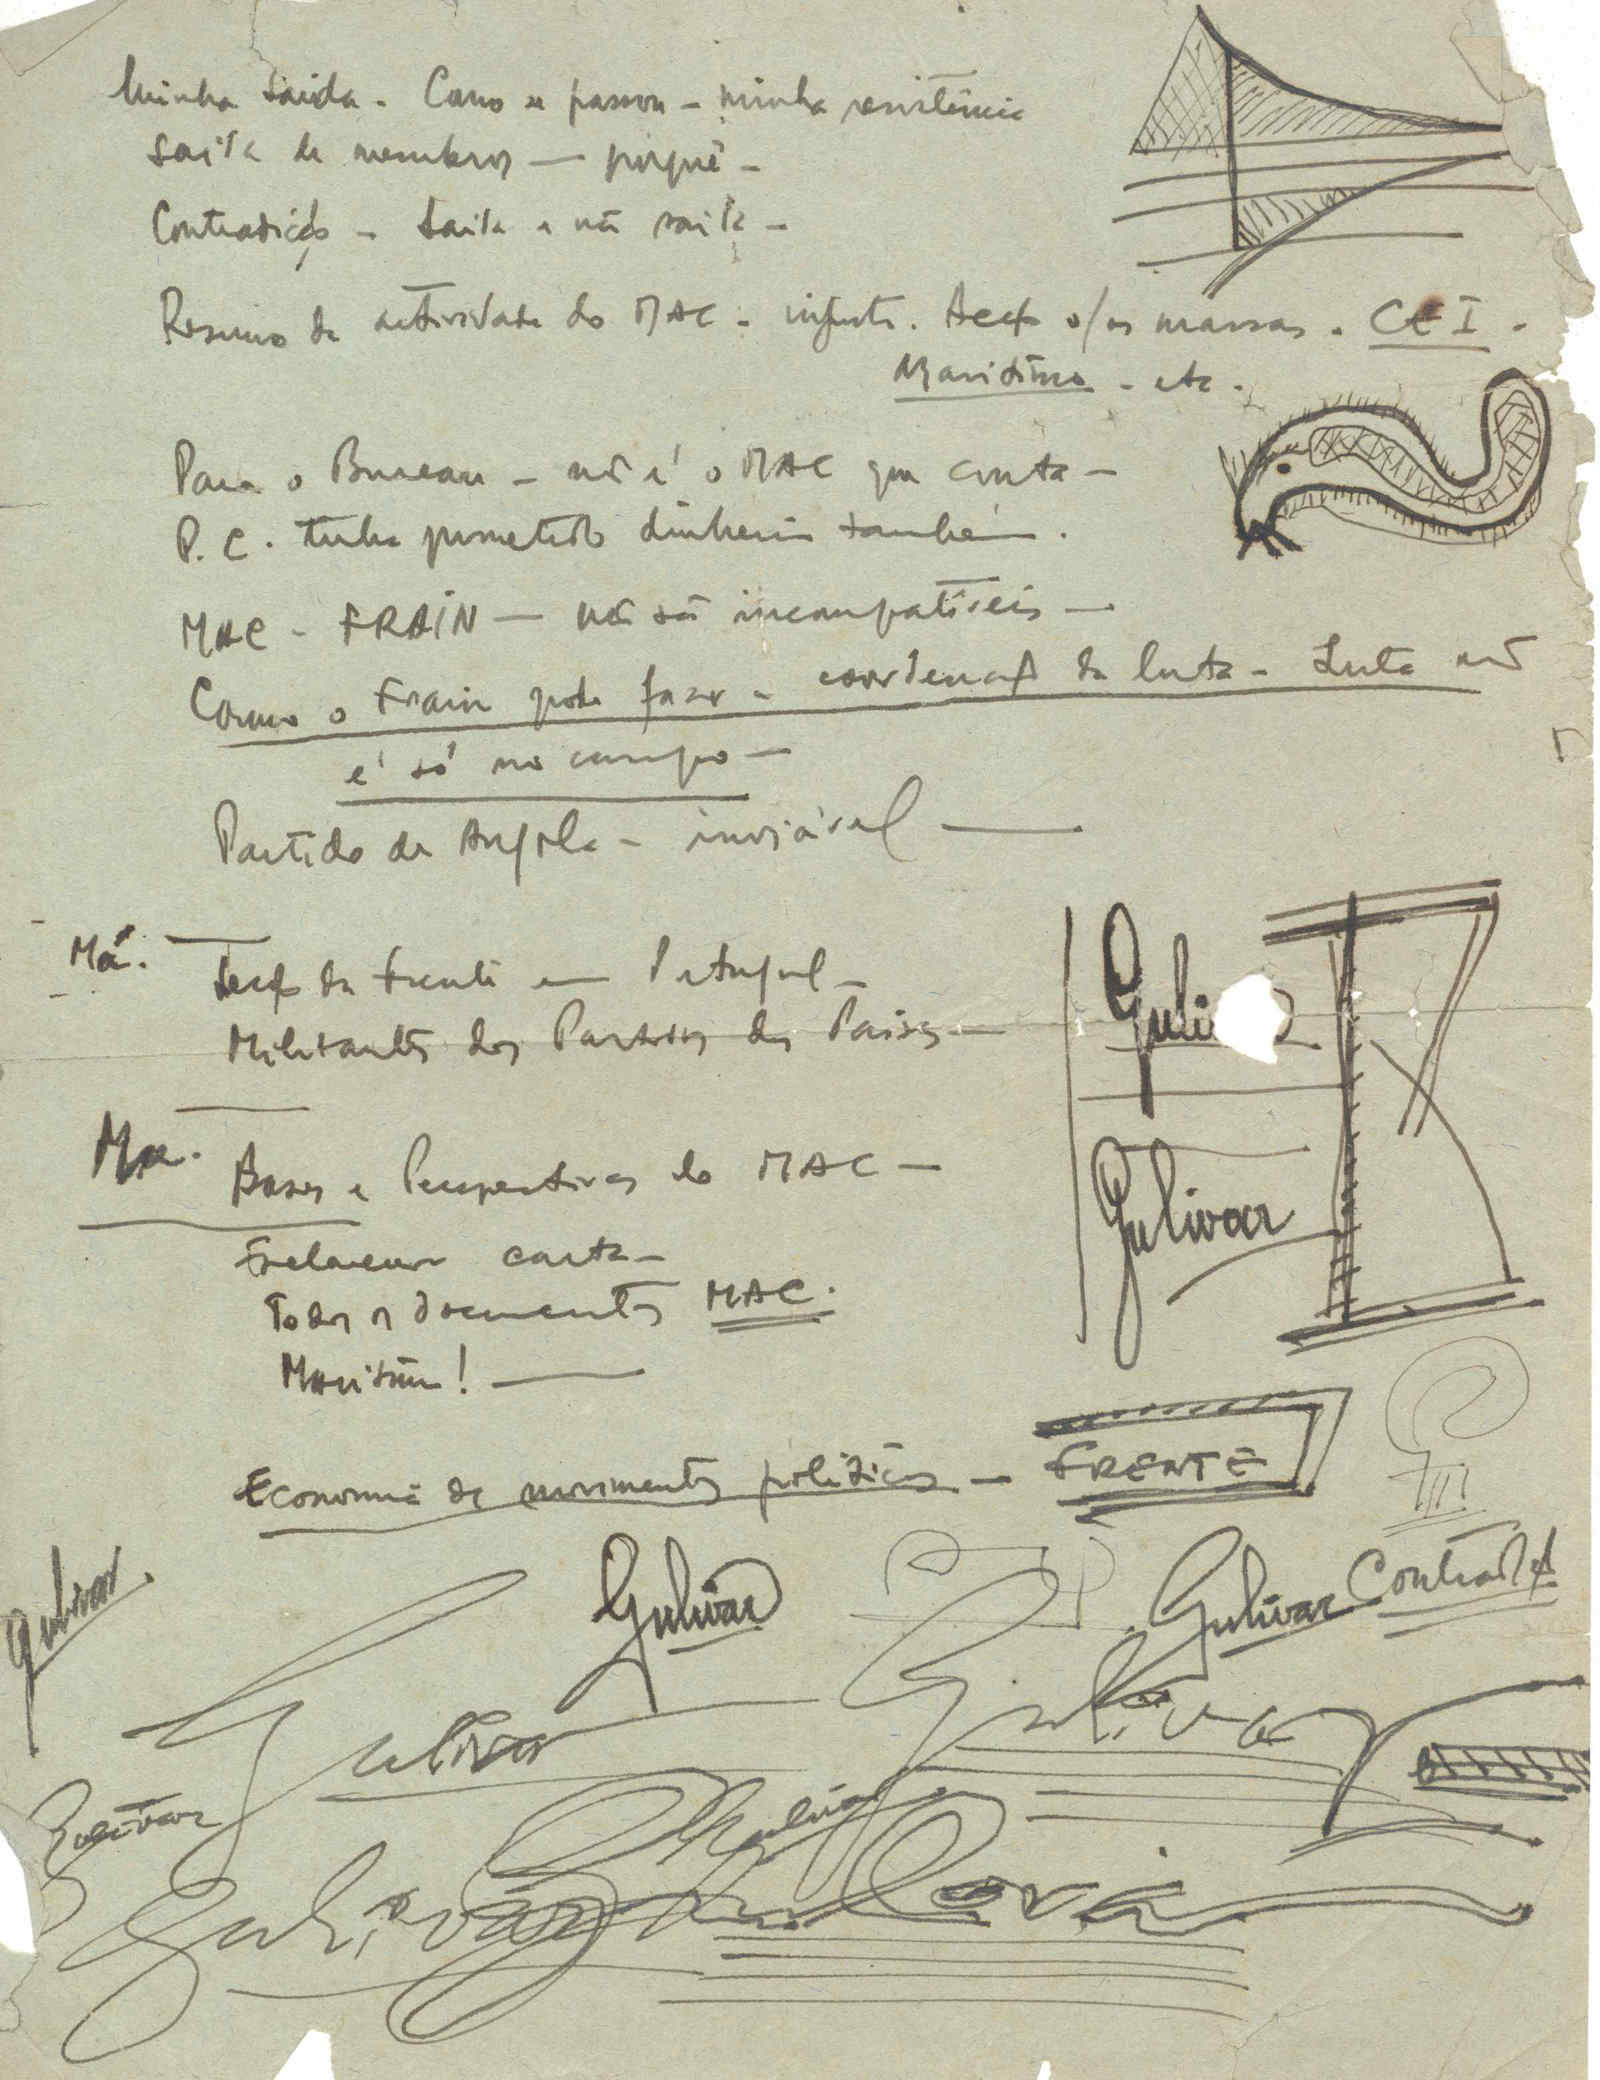 Minha saida - Como se passou - minha resistência
saída de membros — porquê -
Contradições - Saida e não saida -
Resumo da actividade do MAC - . Acção s/ as massas - CEI -
Maritimo - etc.
Para o Bureau - não é o MAC que conta -
P.C. tinha prometido dinheiro também.
MAC - FRAIN — não são incompatíveis —
Como o Frain pode fazer a coordenação da luta - Luta não
é só no campo —
Partido de Angola - inviável —
Má.
Secção da Frente em Portugal -
Militantes dos Partidos dos Paises —
Bases e Perspectivas do MAC —
carta -
Todos os documentos MAC.
!
Economia de movimentos políticos — FRENTE
Gulivar
Gulivar
Gulivar
Gulivar
Gulivar
Gulivar
Gulivar
Gulivar
Gulivar
Gulivar